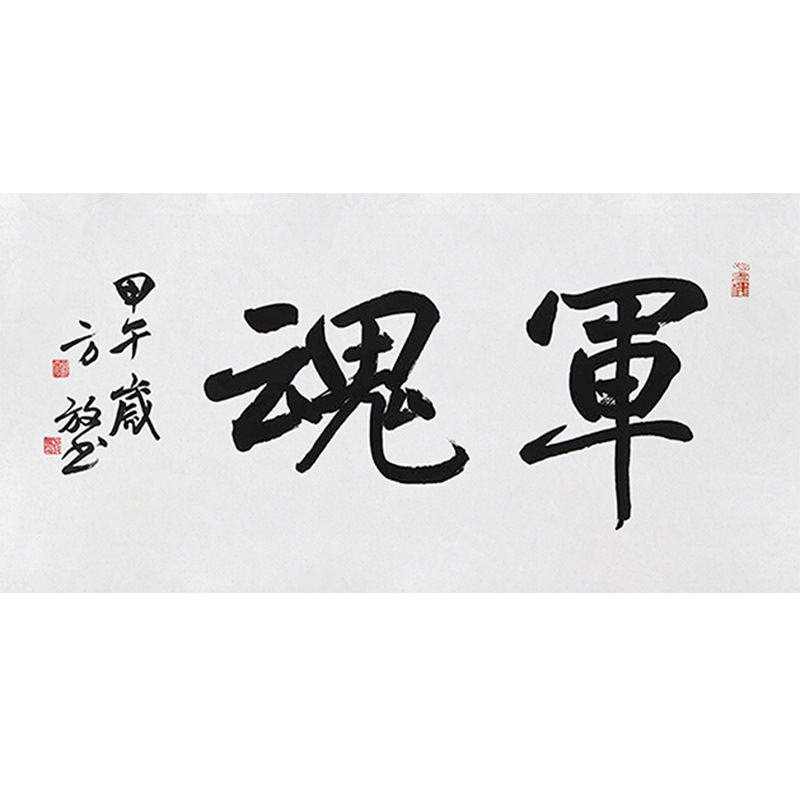 軍魂
甲午歲
方放书